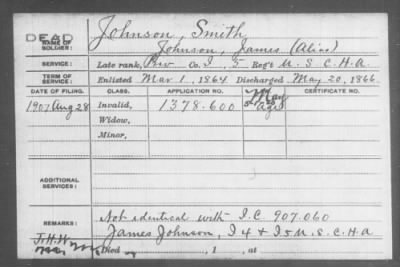 DEAD
NAME OF SOLDIER: Johnson, Smith
Johnson, James (Alias)
SERVICE: Late rank, Priv Co. I, 5 Reg't U. S. C. H. A.
TERM OF SERVICE: Enlisted Mar 1, 1864 Discharged May 20, 1866
DATE OF FILING. CLASS. APPLICATION NO. CERTIFICATE NO.
1907 Aug 28 Invalid, 1378.600
Widow,
Minor,
ADDITIONAL SERVICES:
REMARKS: Not identical with I.C 907.060
James Johnson, I 4 & I 5 U. S. C. H. A
Died , 1 , at